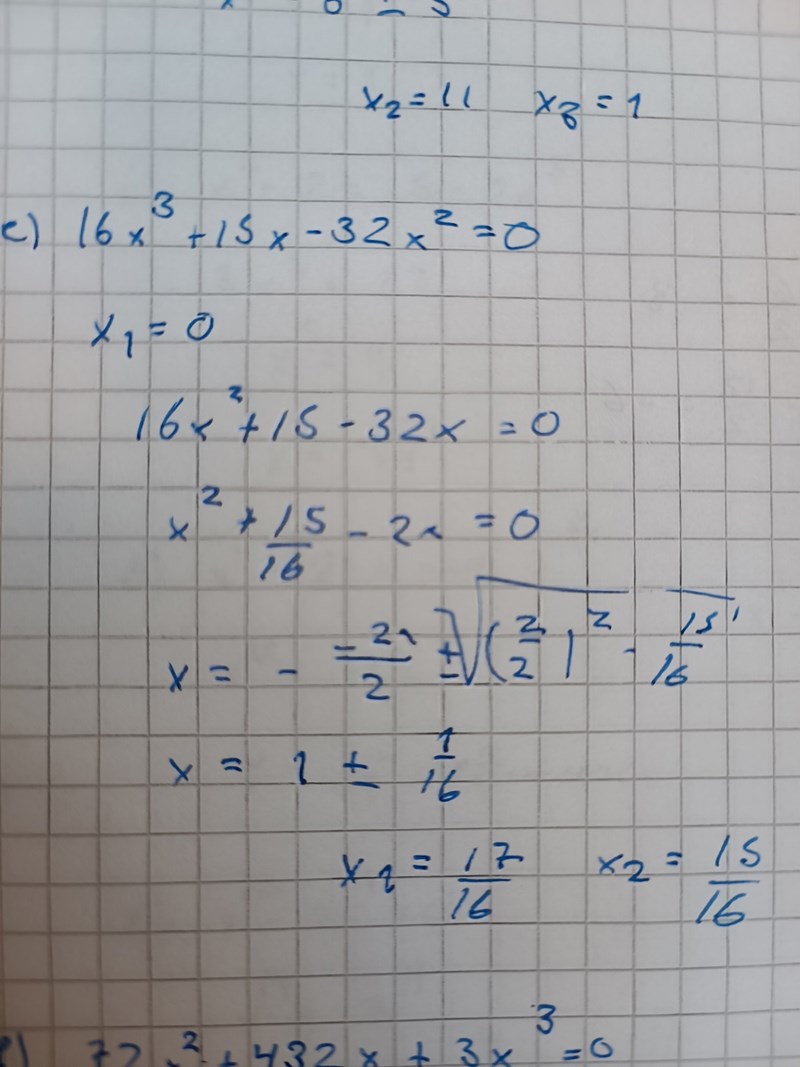 x₂ = 11 x₃ = 1
e) 16x³ + 15x - 32x² = 0
x₁ = 0
16x² + 15 - 32x = 0
x² + 15/16 - 2x = 0
x = - -2x/2 ± √((2/2)² - 15/16)
x = 1 ± 1/16
x₁ = 17/16 x₂ = 15/16
+ 432x + 3x³ = 0